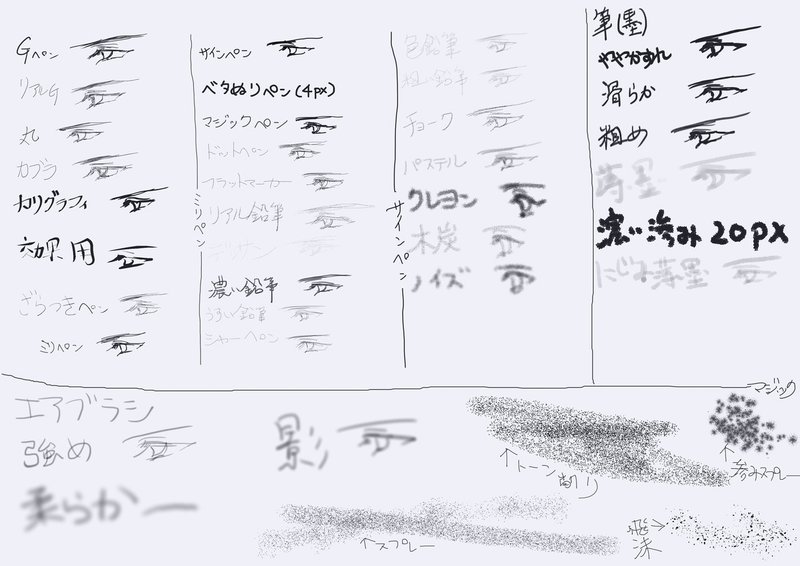 Gペン
リアルG
丸
カブラ
カリグラフィ
効果用
ざらつきペン
ミリペン
サインペン
ベタぬりペン(4px)
マジックペン
ドットペン
フラットマーカー
リアル鉛筆
デッサン
濃い鉛筆
うすい鉛筆
シャーペン
ミリペン
色鉛筆
粗い鉛筆
チョーク
パステル
クレヨン
木炭
ノイズ
サインペン
筆(墨)
ややかすれ
滑らか
粗め
薄墨
濃い滲み 20px
にじみ薄墨
マジック
エアブラシ
強め
柔らか
影
↑トーン削り
↑滲みスプレー
↑スプレー
飛沫→